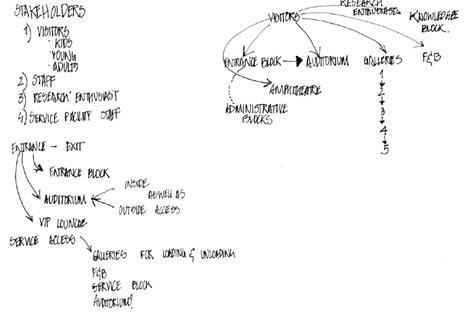 STAKEHOLDERS
1) VISITORS
· KIDS
YOUNG
· ADULTS
2) STAFF
3) RESEARCH ENTHUSIAST
4) SERVICE FACILITY STAFF
ENTRANCE – EXIT
ENTRANCE BLOCK
AUDITORIUM
INSIDE
AS WELL AS
OUTSIDE ACCESS
VIP LOUNGE
SERVICE ACCESS
GALLERIES FOR LOADING & UNLOADING
F&B
SERVICE BLOCK
AUDITORIUM?
VISITORS
RESEARCH
ENTHUSIAST
KNOWLEDGE
BLOCK.
ENTRANCE BLOCK
AUDITORIUM
GALLERIES
F&B
AMPHITHEATRE
ADMINISTRATIVE
BLOCKS
1
2
3
4
5